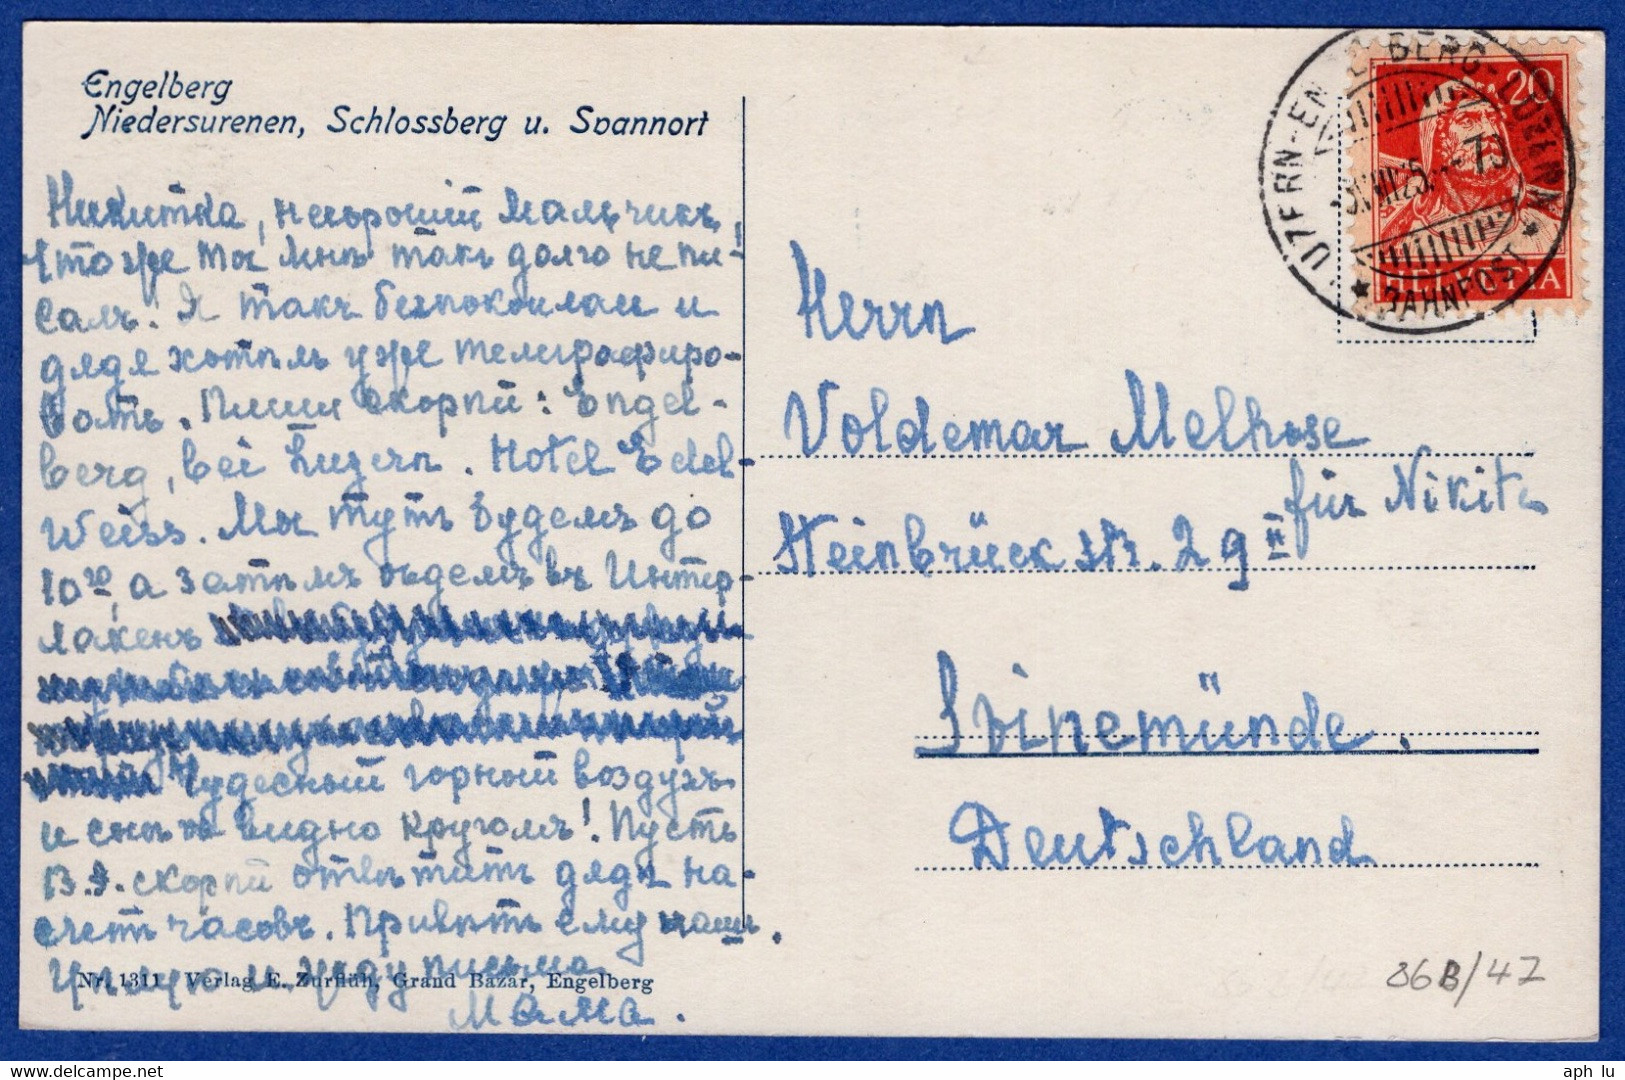 Engelberg
Niedersurenen, Schlossberg u. Spannort
Никитка, нехорошiй мальчикъ,
Что же ты мнѣ такъ долго не пи-
салъ! Я такъ безпокоилась и
дядя хотѣлъ уже телеграфиро-
вать. Пиши скорѣй: Engel-
berg, bei Luzern. Hotel Edel-
weiss. Мы тутъ будемъ до
10го, а затѣмъ ѣдемъ въ Интер-
лакенъ
Чудесный горный воздухъ
и снѣгъ видно кругомъ! Пусть
В.Я. скорѣй отвѣтитъ дядѣ на-
счетъ часовъ. Привѣтъ ему нашъ.
Цѣлую и жду письма
Мама.
Nr. 1311 Verlag E. Zurflüh, Grand Bazar, Engelberg
LUZERN-ENGELBERG-LUZERN
* BAHNPOST *
20
HELVETIA
Herrn
Voldemar Melhose
für Nikita
Steinbrückstr. 29 II
Svinemünde.
Deutschland
86B/47
aph lu